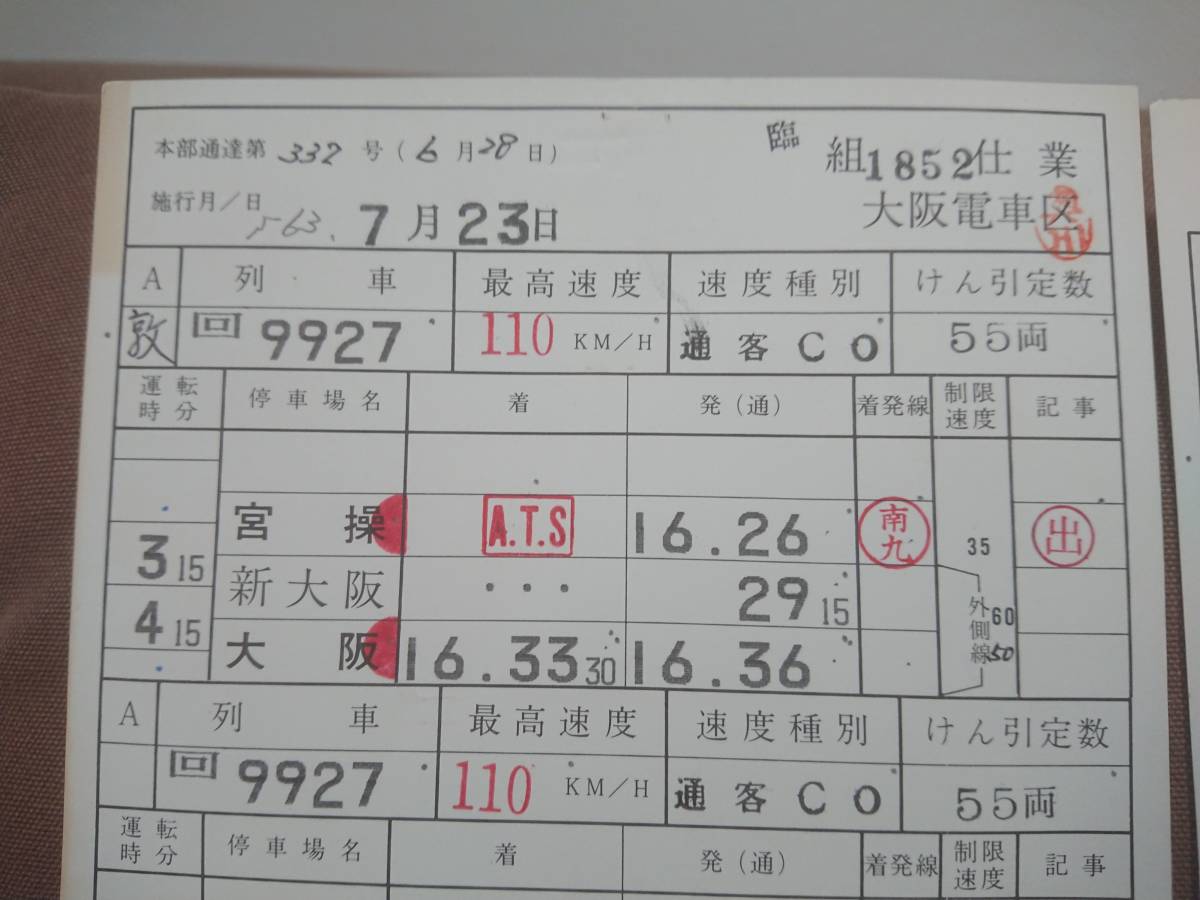 本部通達第 332 号 ( 6 月 28 日 )
臨 組1852仕業
施行月/日 S63. 7月23日
大阪電車区
A 列車 最高速度 速度種別 けん引定数
敦 回 9927 110 KM/H 通客C0 55両
運転時分 停車場名 着 発(通) 着発線 制限速度 記事
宮操 A.T.S 16.26 南九 35 出
3 15
新大阪 ・・・ 29 15
4 15 外側線 60 50
大阪 16.33 30 16.36
A 列車 最高速度 速度種別 けん引定数
回 9927 110 KM/H 通客C0 55両
運転時分 停車場名 着 発(通) 着発線 制限速度 記事